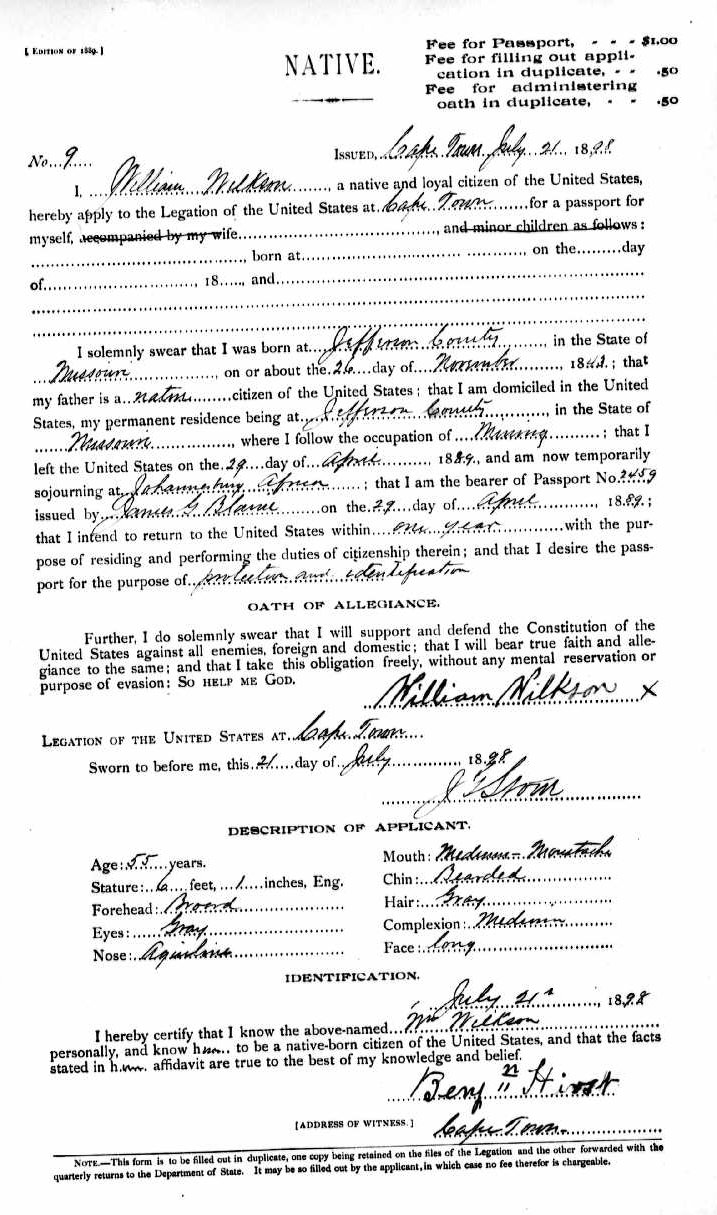 [ EDITION OF 1889. ]
NATIVE.
Fee for Passport, - - - $1.00
Fee for filling out appli-
cation in duplicate, - - .50
Fee for administering
oath in duplicate, - - .50
No. 9 ISSUED, Cape Town July 21 1898
I, William Wilkson, a native and loyal citizen of the United States,
hereby apply to the Legation of the United States at Cape Town for a passport for
myself, accompanied by my wife, and minor children as follows:
, born at , on the day
of , 18 , and
I solemnly swear that I was born at Jefferson County, in the State of
Missouri, on or about the 26 day of November, 1843.; that
my father is a native citizen of the United States; that I am domiciled in the United
States, my permanent residence being at Jefferson County, in the State of
Missouri, where I follow the occupation of Mining; that I
left the United States on the 29 day of April, 1889, and am now temporarily
sojourning at Johannesburg Africa; that I am the bearer of Passport No. 2459
issued by James G Blaine on the 29 day of April, 1889;
that I intend to return to the United States within one year with the pur-
pose of residing and performing the duties of citizenship therein; and that I desire the pass-
port for the purpose of protection and identification
OATH OF ALLEGIANCE.
Further, I do solemnly swear that I will support and defend the Constitution of the
United States against all enemies, foreign and domestic; that I will bear true faith and alle-
giance to the same; and that I take this obligation freely, without any mental reservation or
purpose of evasion: SO HELP ME GOD.
William Wilkson X
LEGATION OF THE UNITED STATES AT Cape Town
Sworn to before me, this 21 day of July, 1898
DESCRIPTION OF APPLICANT.
Age: 55 years.
Stature: 6 feet, 1 inches, Eng.
Forehead: Broard
Eyes: Gray
Nose: Aquiline
Mouth: Medium - Moustache
Chin: Bearded
Hair: Gray
Complexion: Medium
Face: long
IDENTIFICATION.
July 21, 1898
I hereby certify that I know the above-named Wm Wilkson
personally, and know him to be a native-born citizen of the United States, and that the facts
stated in h affidavit are true to the best of my knowledge and belief.
Benjn
[ADDRESS OF WITNESS.] Cape Town
NOTE.—This form is to be filled out in duplicate, one copy being retained on the files of the Legation and the other forwarded with the
quarterly returns to the Department of State. It may be so filled out by the applicant, in which case no fee therefor is chargeable.